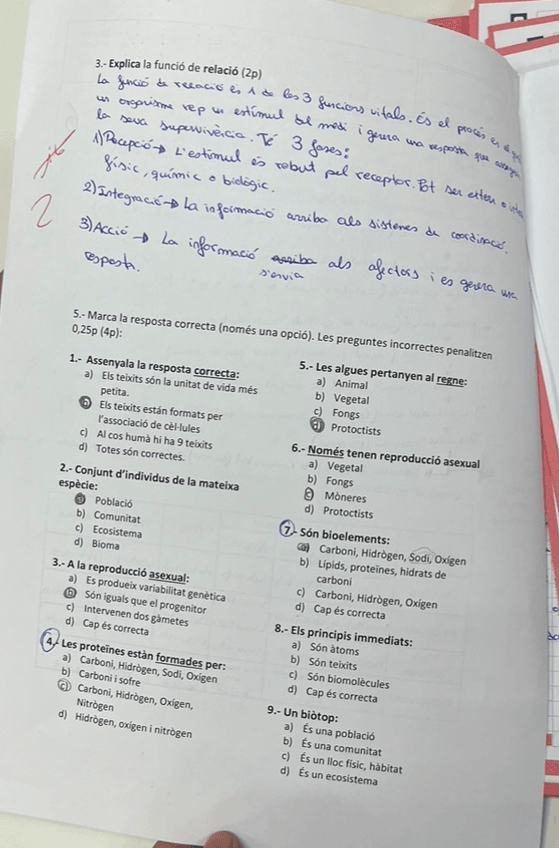 3.- Explica la funció de relació (2p)
La funció de relació és 1 de les 3 funcions vitals. És el procés en el
un organisme rep un estímul del medi i genera una resposta que
la seva supervivència. Té 3 fases:
1) Recepció → L'estímul és rebut pel receptor. Pot ser extern o
físic, químic o biològic.
2) Integració → La informació arriba als sistemes de coordinació.
3) Acció → La informació arriba als efectors i es genera una
s'envia
resposta.
2
5.- Marca la resposta correcta (només una opció). Les preguntes incorrectes penalitzen
0,25p (4p):
1.- Assenyala la resposta correcta:
a) Els teixits són la unitat de vida més
petita.
b) Els teixits están formats per
l'associació de cèl·lules
c) Al cos humà hi ha 9 teixits
d) Totes són correctes.
2.- Conjunt d'individus de la mateixa
espècie:
a) Població
b) Comunitat
c) Ecosistema
d) Bioma
3.- A la reproducció asexual:
a) Es produeix variabilitat genètica
b) Són iguals que el progenitor
c) Intervenen dos gàmetes
d) Cap és correcta
4.- Les proteïnes estàn formades per:
a) Carboni, Hidrògen, Sodi, Oxígen
b) Carboni i sofre
c) Carboni, Hidrògen, Oxígen,
Nitrògen
d) Hidrògen, oxígen i nitrògen
5.- Les algues pertanyen al regne:
a) Animal
b) Vegetal
c) Fongs
d) Protoctists
6.- Només tenen reproducció asexual
a) Vegetal
b) Fongs
c) Mòneres
d) Protoctists
7.- Són bioelements:
a) Carboni, Hidrògen, Sodi, Oxígen
b) Lípids, proteïnes, hidrats de
carboni
c) Carboni, Hidrògen, Oxígen
d) Cap és correcta
8.- Els principis immediats:
a) Són àtoms
b) Són teixits
c) Són biomolècules
d) Cap és correcta
9.- Un biòtop:
a) És una població
b) És una comunitat
c) És un lloc físic, hàbitat
d) És un ecosistema